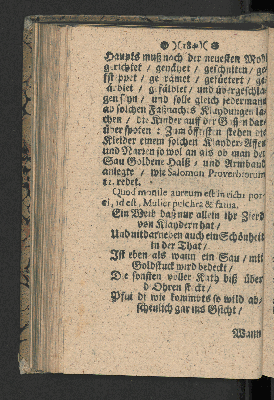 )( 184 )(
Haupts muß nach der neuesten Mode
gerichtet / genähet / geschnitten / ge-
steppet / geramet / gefüttert / ge-
gen seyn / und solle gleich jederman
ob solchen Kleydungen la-
chen / die Kinder auff der Gassen darü-
ber spotten : Zum öfftesten stehen die
Kleider einem solchen Kleyder-Affen
und Narren so wol an als ob man der
Sau Goldene Halß / und Armband
anlegte / wie Salomon Proverbiorum
11. redet.
Quod monile aureum est in riciu por-
ci, id est, Mulier pulchra & fatua.
Ein Weib daß nur allein ihr Zierd
von Kleydern hat /
Und nit darneben auch ein Schönheit
in der That /
Ist eben als wann ein Sau / mit
Goldstuck wird bedeckt /
Die sonsten voller Kath biß über
d'Ohren steckt /
Pfui dt wie kommts so wild ab-
scheulich gar ins Gsicht /
Wann